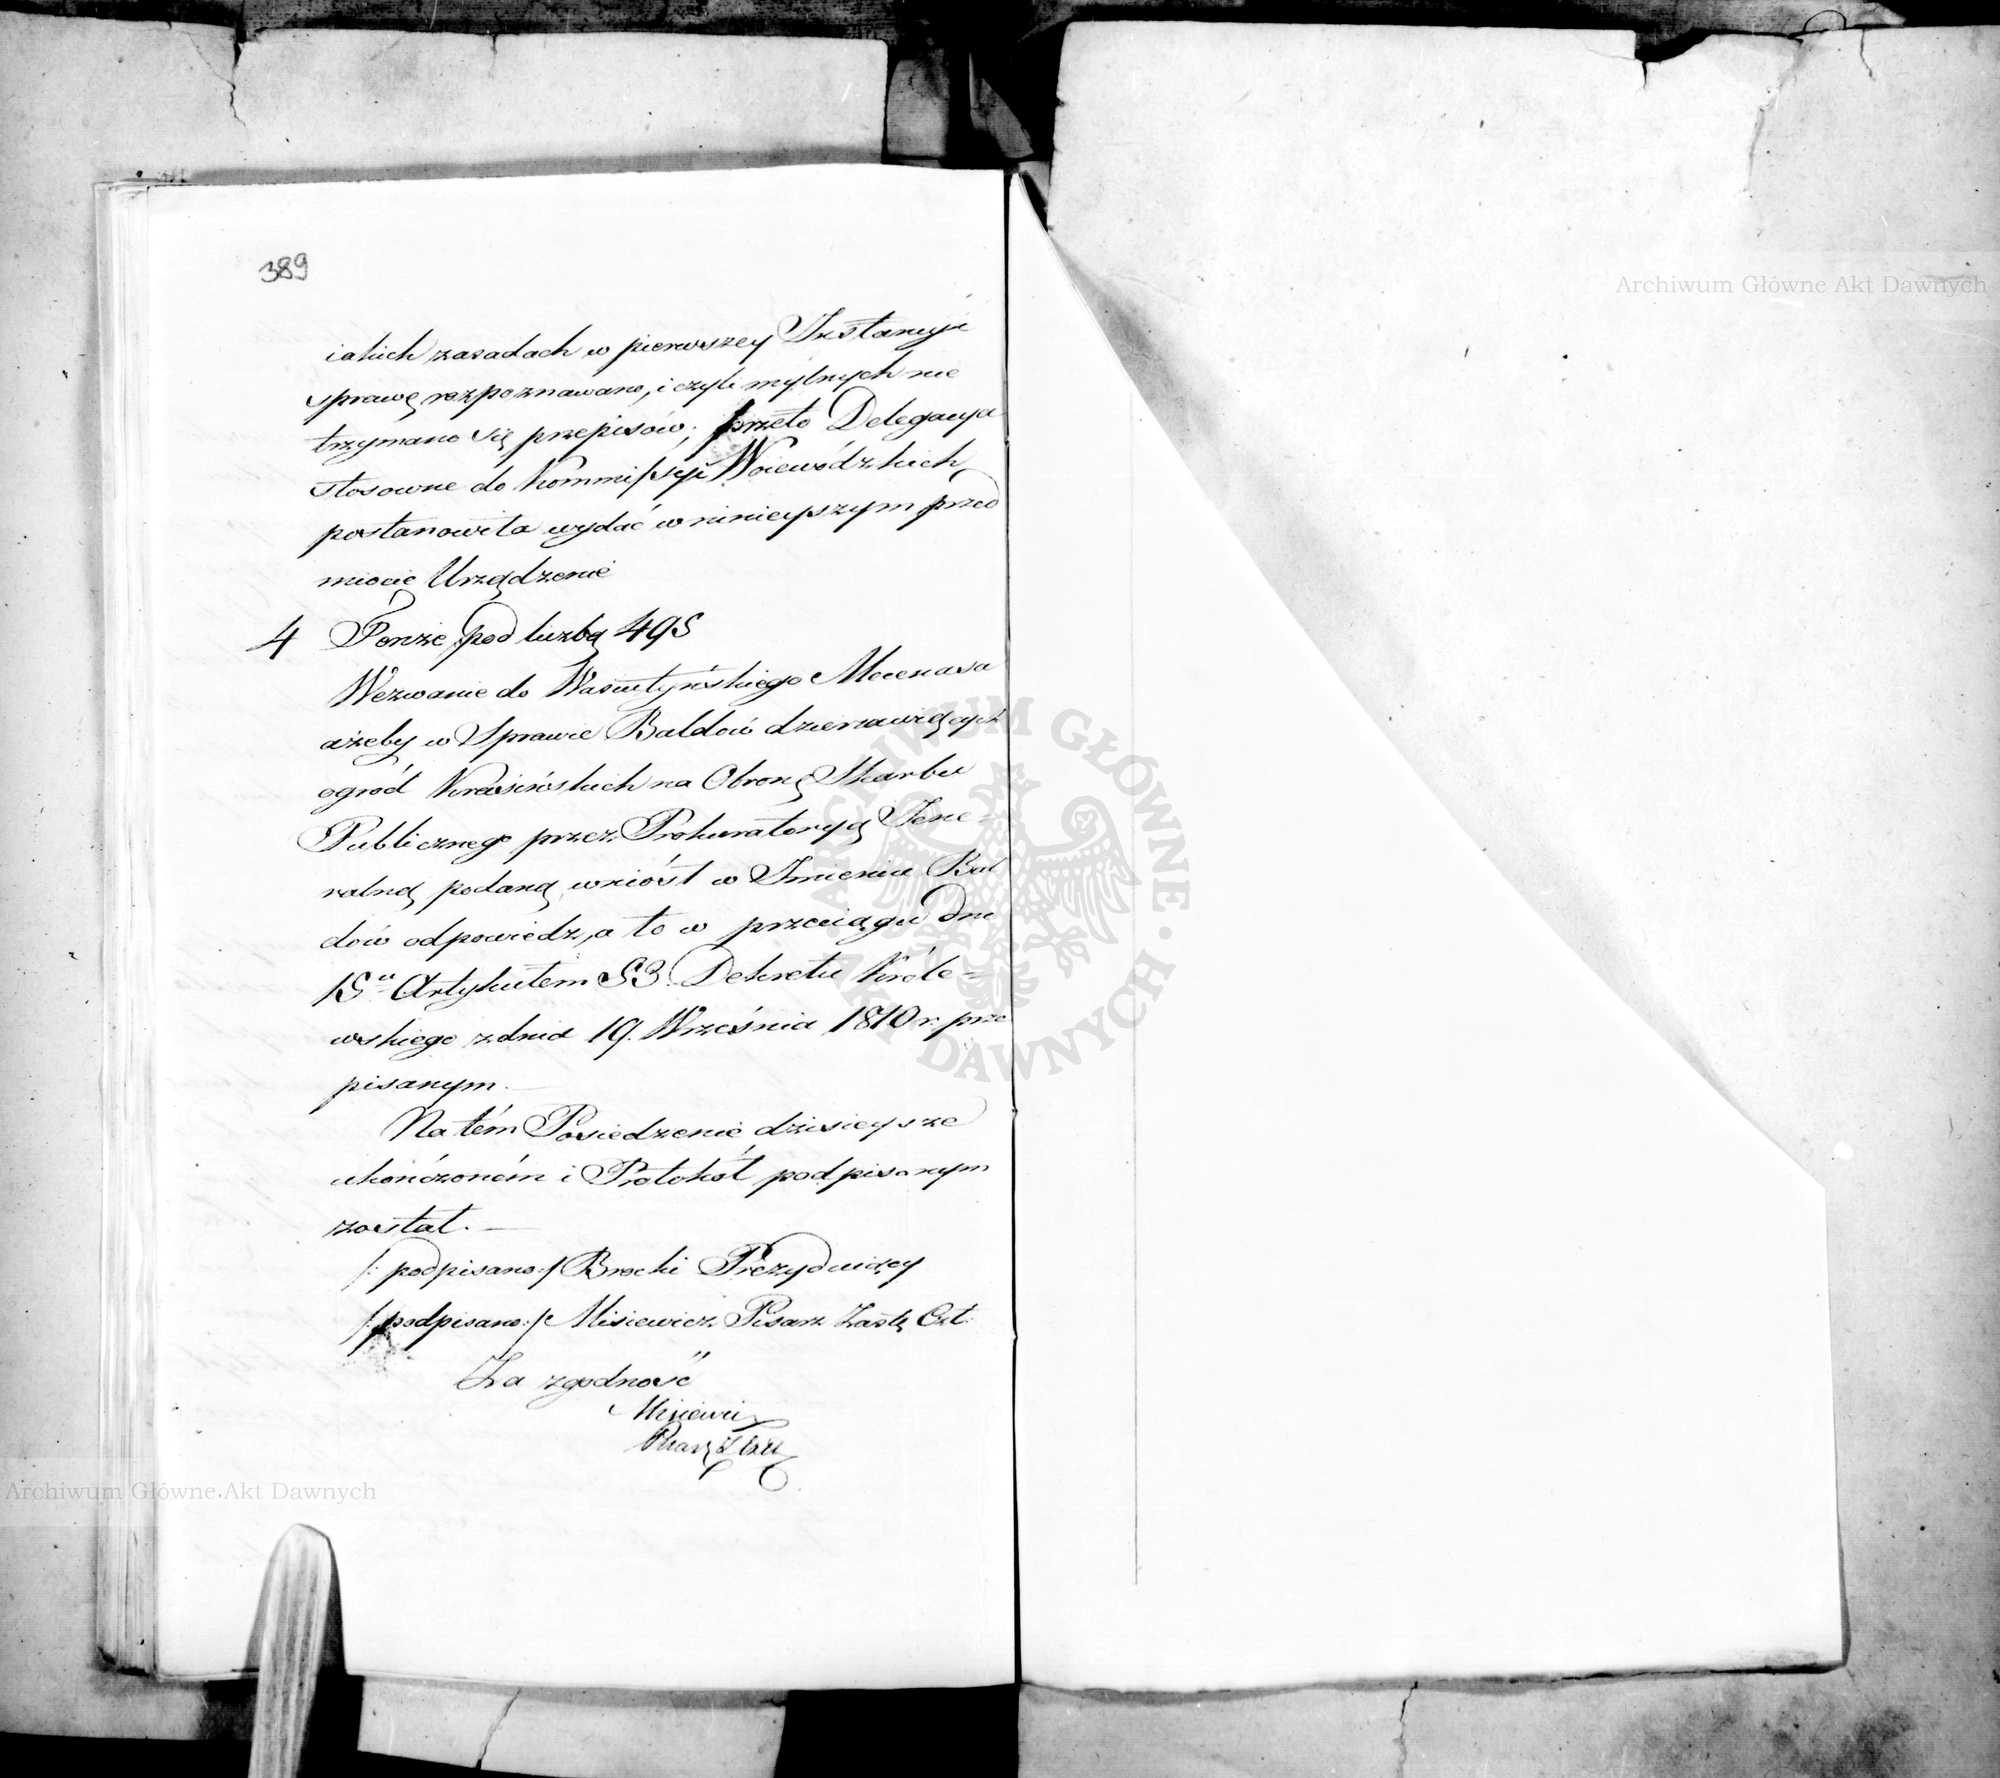 389
iakich zasadach w pierwszey Instancyi
sprawę rozpoznawano, i czyli mylnych nie
trzymano się przepisów; przeto Delegacya
stosowne do Kommissyi Woiewódzkich
postanowiła wydać w ninieyszym przed
miocie Urządzenie
4 Tenże pod liczbą 495
Wezwanie do Wasiutyńskiego Mecenasa
ażeby w Sprawie Baldów dzierzawiących
ogród Krasińskich na Obronę Skarbu
Publicznego przez Prokuratoryą Jene-
ralną podaną wniósł w Imieniu Bal
dów odpowiedz, a to w przeciągu dni
15u Artykułem 53. Dekretu Króle=
wskiego z dnia 19. Września 1810 r. prze
pisanym.
Na tém Posiedzenie dzisieysze
ukończoném i Protokół podpisanym
został. —
/: podpisano :/ Brocki Prezyduiący
/: podpisano :/ Misiewicz Pisarz Zastę
Za zgodność
Misiewicz
Archiwum Główne Akt Dawnych
Archiwum Główne Akt Dawnych
ARCHIWUM GŁÓWNE AKT DAWNYCH